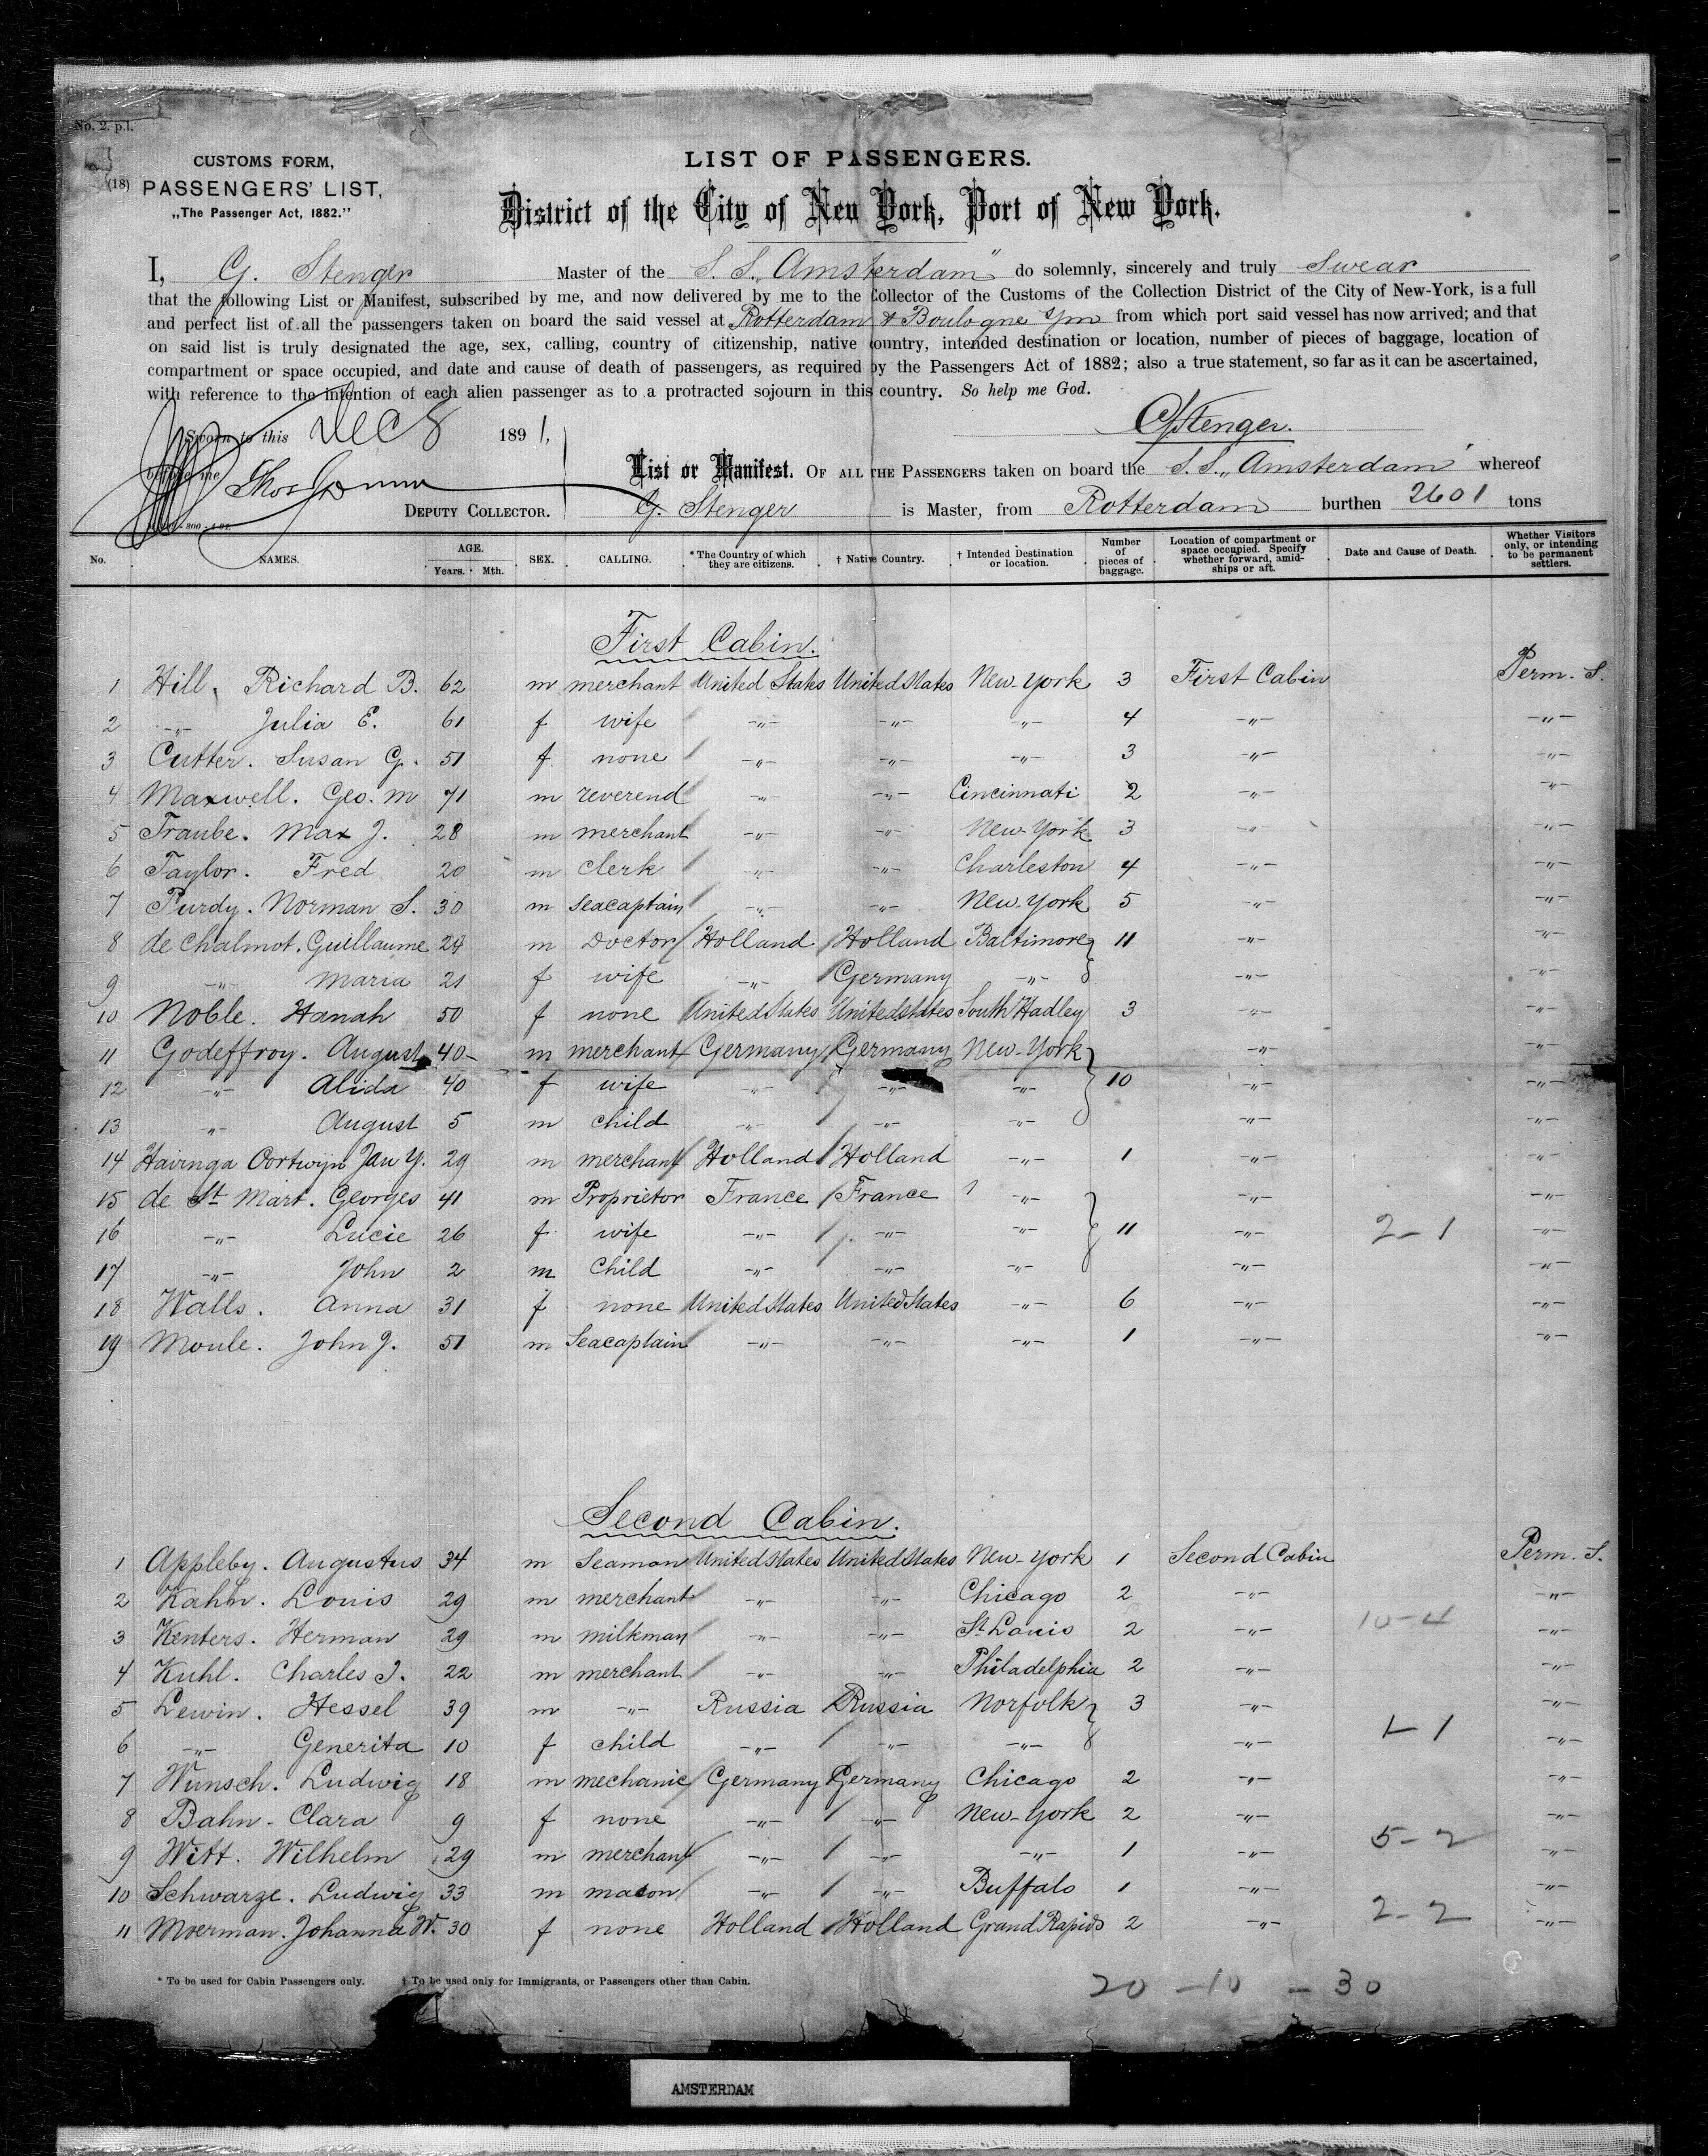 No. 2. p.l.
(18)
CUSTOMS FORM,
PASSENGERS' LIST,
„The Passenger Act, 1882."
LIST OF PASSENGERS.
District of the City of New York, Port of New York.
I, G. Stenger Master of the S. S. „Amsterdam" do solemnly, sincerely and truly Swear
that the following List or Manifest, subscribed by me, and now delivered by me to the Collector of the Customs of the Collection District of the City of New-York, is a full
and perfect list of all the passengers taken on board the said vessel at Rotterdam & Boulogne s/m from which port said vessel has now arrived; and that
on said list is truly designated the age, sex, calling, country of citizenship, native country, intended destination or location, number of pieces of baggage, location of
compartment or space occupied, and date and cause of death of passengers, as required by the Passengers Act of 1882; also a true statement, so far as it can be ascertained,
with reference to the intention of each alien passenger as to a protracted sojourn in this country. So help me God.
Sworn to this Dec 8 1891,
GStenger.
before me
DEPUTY COLLECTOR.
List or Manifest. OF ALL THE PASSENGERS taken on board the S. S. „Amsterdam" whereof
G. Stenger is Master, from Rotterdam burthen 2601 tons
No. NAMES. AGE. Years. Mth. SEX. CALLING. * The Country of which they are citizens. † Native Country. † Intended Destination or location. Number of pieces of baggage. Location of compartment or space occupied. Specify whether forward, amidships or aft. Date and Cause of Death. Whether Visitors only, or intending to be permanent settlers.
First Cabin.
1 Hill, Richard B. 62 m merchant United States United States New-York 3 First Cabin Perm. S.
2 -„- Julia E. 61 f wife -„- -„- -„- 4 -„- -„-
3 Cutter. Susan G. 51 f. none -„- -„- -„- 3 -„- -„-
4 Maxwell. Geo. M 71 m reverend -„- -„- Cincinnati 2 -„- -„-
5 Traube. Max J. 28 m merchant -„- -„- New-York 3 -„- -„-
6 Taylor. Fred 20 m clerk -„- -„- Charleston 4 -„- -„-
7 Purdy. Norman S. 30 m Seacaptain -„- -„- New-York 5 -„- -„-
8 de Chalmot. Guillaume 24 m Doctor Holland Holland Baltimore 11 -„- -„-
9 -„- Maria 21 f wife -„- Germany -„- -„- -„-
10 Noble. Hanah 50 f none United States United States South Hadley 3 -„- -„-
11 Godeffroy. August 40 m merchant Germany Germany New-York -„- -„-
12 -„- Alida 40 f wife -„- -„- -„- 10 -„- -„-
13 -„- August 5 m child -„- -„- -„- -„- -„-
14 Hairnga Oortwijn Jan Y. 29 m merchant Holland Holland -„- 1 -„- -„-
15 de St Mart. Georges 41 m Proprietor France France -„- -„- -„-
16 -„- Lucie 26 f. wife -„- -„- -„- 11 -„- 2-1 -„-
17 -„- John 2 m Child -„- -„- -„- -„- -„-
18 Walls. Anna 31 f none United States United States -„- 6 -„- -„-
19 Moule. John J. 51 m Seacaptain -„- -„- -„- 1 -„- -„-
Second Cabin.
1 Appleby. Augustus 34 m Seaman United States United States New-York 1 Second Cabin Perm. S.
2 Kahn. Louis 29 m merchant -„- -„- Chicago 2 -„- -„-
3 Kenters. Herman 29 m milkman -„- -„- St Louis 2 -„- 10-4 -„-
4 Kuhl. Charles J. 22 m merchant -„- -„- Philadelphia 2 -„- -„-
5 Lewin. Hessel 39 m -„- Russia Russia Norfolk 3 -„- -„-
6 -„- Generita 10 f child -„- -„- -„- -„- 1-1 -„-
7 Wunsch. Ludwig 18 m mechanic Germany Germany Chicago 2 -„- -„-
8 Bahn. Clara 9 f none -„- -„- New-York 2 -„- -„-
9 Witt. Wilhelm 29 m merchant -„- -„- -„- 1 -„- 5-2 -„-
10 Schwarze. Ludwig 33 m mason -„- -„- Buffalo 1 -„- -„-
11 Moerman. Johanna W. 30 f none Holland Holland Grand Rapids 2 -„- 2-2 -„-
* To be used for Cabin Passengers only. † To be used only for Immigrants, or Passengers other than Cabin.
20 - 10 - 30
AMSTERDAM